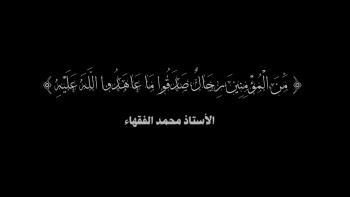 ﴿ مِّنَ الْمُؤْمِنِينَ رِجَالٌ صَدَقُوا مَا عَاهَدُوا اللَّهَ عَلَيْهِ ﴾
الأستاذ محمد الفقهاء